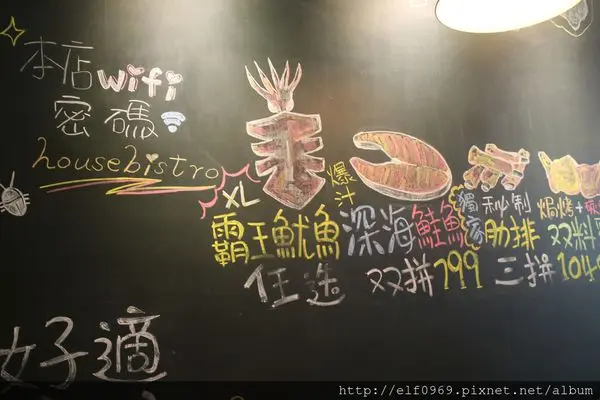 本店wifi
密碼
housebistro
XL
霸王魷魚
爆汁
深海鮭魚
獨家
私制
肋排
焗烤+
双料
任选 双拼799 三拼104
好適
http://elf0969.pixnet.net/album